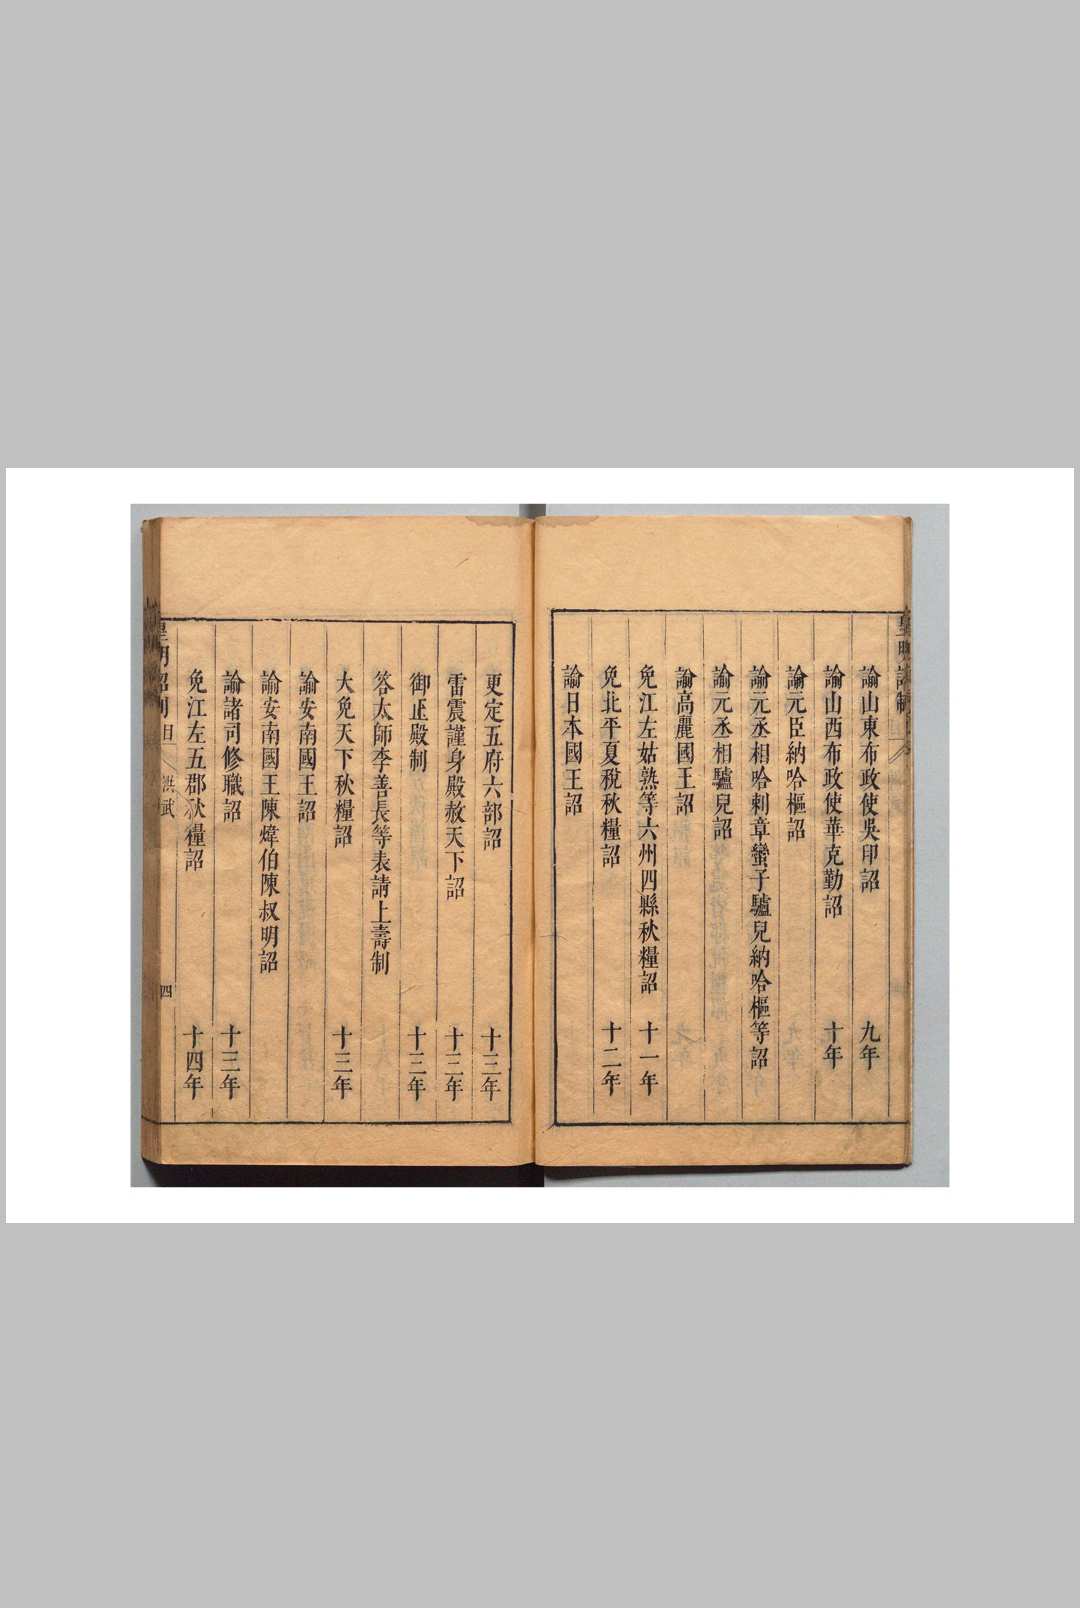 皇明詔制
諭山東布政使吳印詔 九年
諭山西布政使華克勤詔 十年
諭元臣納哈樞詔
諭元丞相哈剌章蠻子驢兒納哈樞等詔
諭元丞相驢兒詔
諭高麗國王詔
免江左姑熟等六州四縣秋糧詔 十一年
免北平夏稅秋糧詔 十二年
諭日本國王詔
更定五府六部詔 十三年
雷震謹身殿赦天下詔 十三年
御正殿制 十三年
答太師李善長等表請上壽制
大免天下秋糧詔 十三年
諭安南國王詔
諭安南國王陳煒伯陳叔明詔
諭諸司修職詔 十三年
免江左五郡秋糧詔 十四年
皇明詔制 目 洪武 四